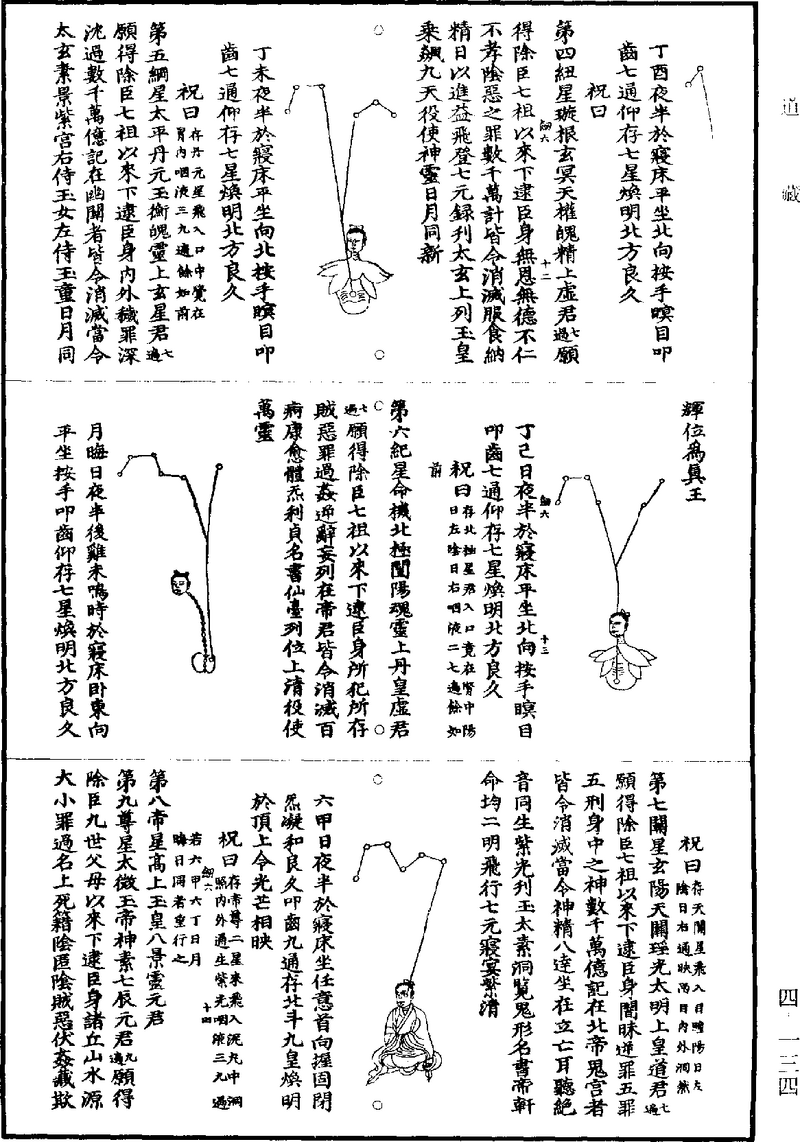 道藏
丁酉夜半於寢床平坐北向按手瞑目叩
齒七通仰存七星煥明北方良久
祝曰
第四紐星璇根玄冥天權魄精上虛君七過願
得除臣七祖以來下逮臣身無恩無德不仁
不孝陰惡之罪數千萬計皆令消滅服食納
精日以進益飛登七元録刋太玄上列玉皇
乘飆九天役使神靈日月同新
丁未夜半於寢床平坐向北按手瞑目叩
齒七通仰存七星煥明北方良久
祝曰存丹元星飛入口中覺在
胃内咽液三九過餘如前
第五綱星太平丹元玉衡魄靈上玄星君七過
願得除臣七祖以來下逮臣身内外穢罪深
沈過數千萬億記在幽關者皆令消滅當令
太玄素景紫宫右侍玉女左侍玉童日月同
輝位為真王
丁己日夜半於寢床平坐北向按手瞑目
叩齒七通仰存七星煥明北方良久
祝曰存北極星飛入口竟在腎中陽
日左陰日右咽液二七過餘如
前
第六紀星命機北極闓陽魂靈上丹皇虛君
七過願得除臣七祖以來下逮臣身所犯所存
賊惡罪過姦逆辭妄列在帝君皆令消滅百
病康愈體炁利貞名書仙臺列位上清役使
萬靈
月晦日夜半後雞未鳴時於寢床卧東向
平坐按手叩齒仰存七星煥明北方良久
祝曰存天關星飛入目瞳陽日左
陰日右通映兩目内外洞煞
第七關星玄陽天關瑶光太明上皇道君七過
願得除臣七祖以來下逮臣身闇昧逆罪五罪
五刑身中之神數千萬億記在北帝鬼宫者
皆令消滅當令神精八達坐在立亡耳聽絕
音同生紫光刋玉太素洞覽鬼形名書帝軒
命均二明飛行七元寢宴紫清
六甲日夜半於寢床坐任意首向握固閉
炁凝和良久叩齒九通存北斗九皇煥明
於頂上令光芒相映
祝曰存帝尊二星來飛入泥丸中洞
照内外通生紫光咽液三九過
若六甲六丁日月
晦日同者重行之
第八帝星高上玉皇八景靈元君
第九尊星太微玉帝神素七辰元君九過願得
除臣九世父母以來下逮臣身諸丘山水源
大小罪過名上死籍陰匿陰賊惡伏姦藏欺
四一三四